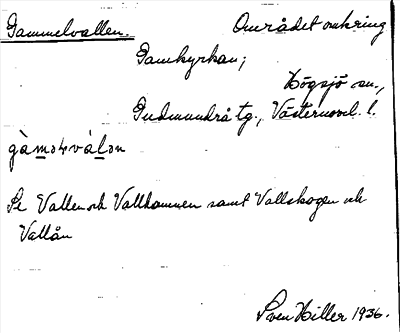 Gammelvallen. Området omkring
Gamkyrkan;
Högsjö sn.,
Gudmundrå tg., Västernorrl. l.
gàməlvàlən
Se Vallen och Vallhammen samt Vallskogen och
Vallån
Sven Hiller 1936.